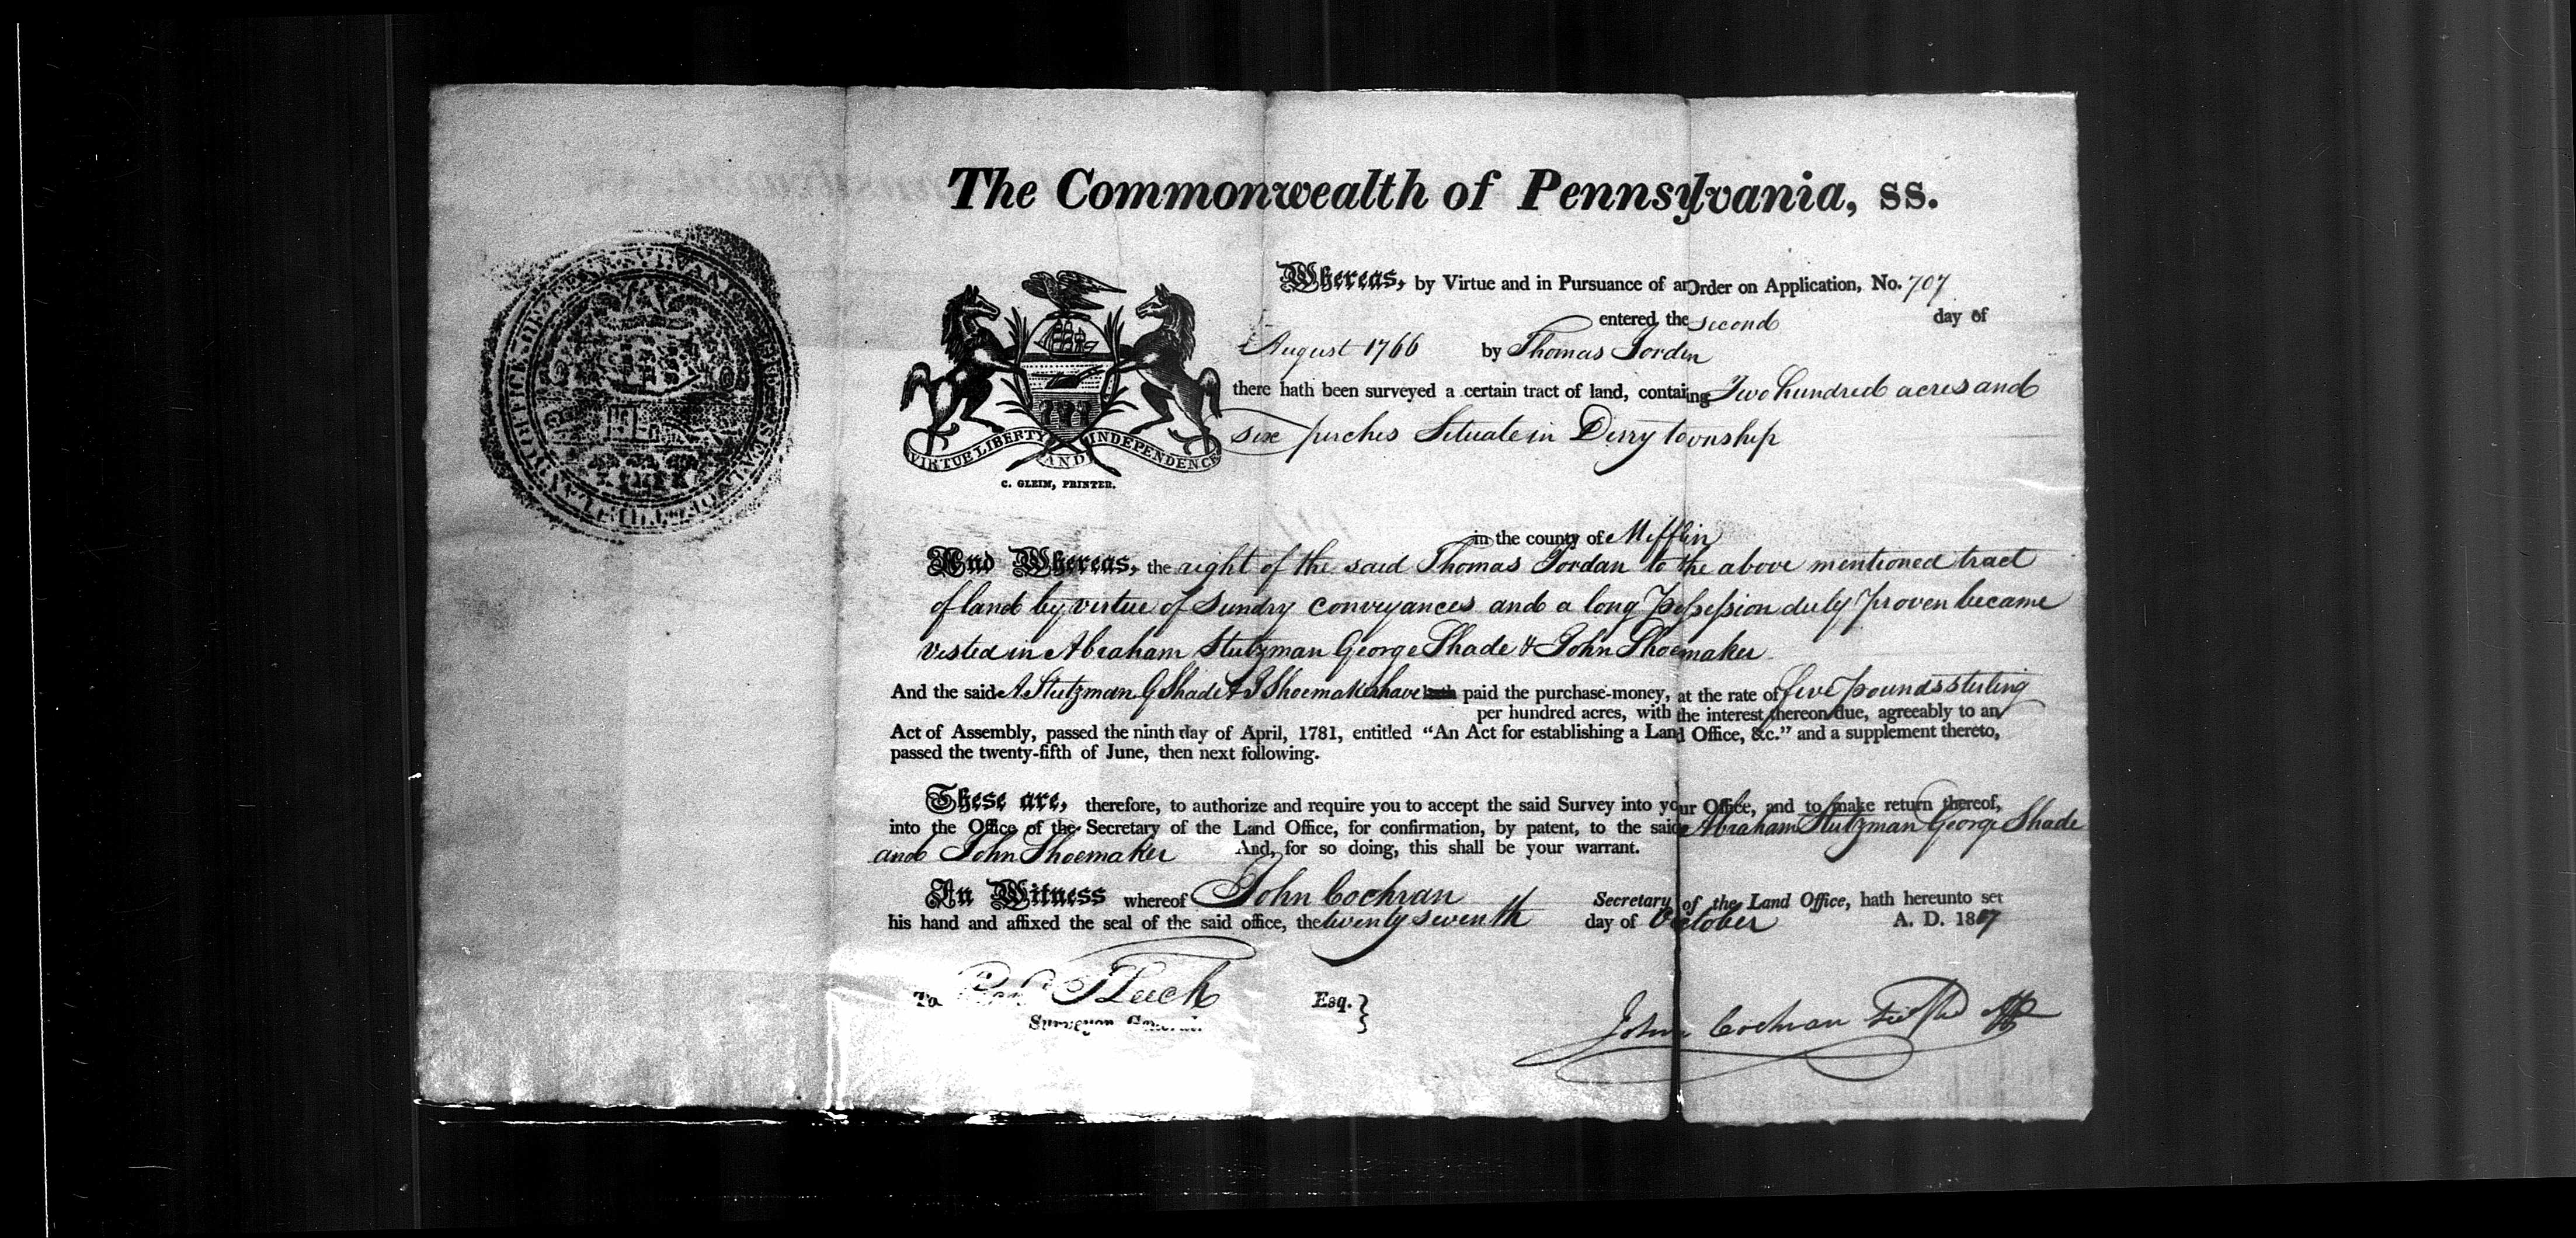 The Commonwealth of Pennsylvania, ss.
Whereas, by Virtue and in Pursuance of an Order on Application, No. 707
entered the second day of
August 1766 by Thomas Jordan
there hath been surveyed a certain tract of land, containg Two hundred acres and
six perches Situate in Derry township
VIRTUE LIBERTY AND INDEPENDENCE
C. GLEIM, PRINTER.
in the county of Mifflin
And Whereas, the right of the said Thomas Jordan to the above mentioned tract
of land by virtue of Sundry conveyances and a long possession duly proven became
vested in Abraham Stutzman George Shade & John Shoemaker
And the said A Stutzman G Shade & J Shoemaker have hath paid the purchase-money, at the rate of five pounds sterling
per hundred acres, with the interest thereon due, agreeably to an
Act of Assembly, passed the ninth day of April, 1781, entitled “An Act for establishing a Land Office, &c.” and a supplement thereto,
passed the twenty-fifth of June, then next following.
These are, therefore, to authorize and require you to accept the said Survey into your Office, and to make return thereof,
into the Office of the Secretary of the Land Office, for confirmation, by patent, to the said Abraham Stutzman George Shade
and John Shoemaker And, for so doing, this shall be your warrant.
In Witness whereof John Cochran Secretary of the Land Office, hath hereunto set
his hand and affixed the seal of the said office, the twenty seventh day of October A. D. 1817
To Esq. }
Surveyor General.
John Cochran